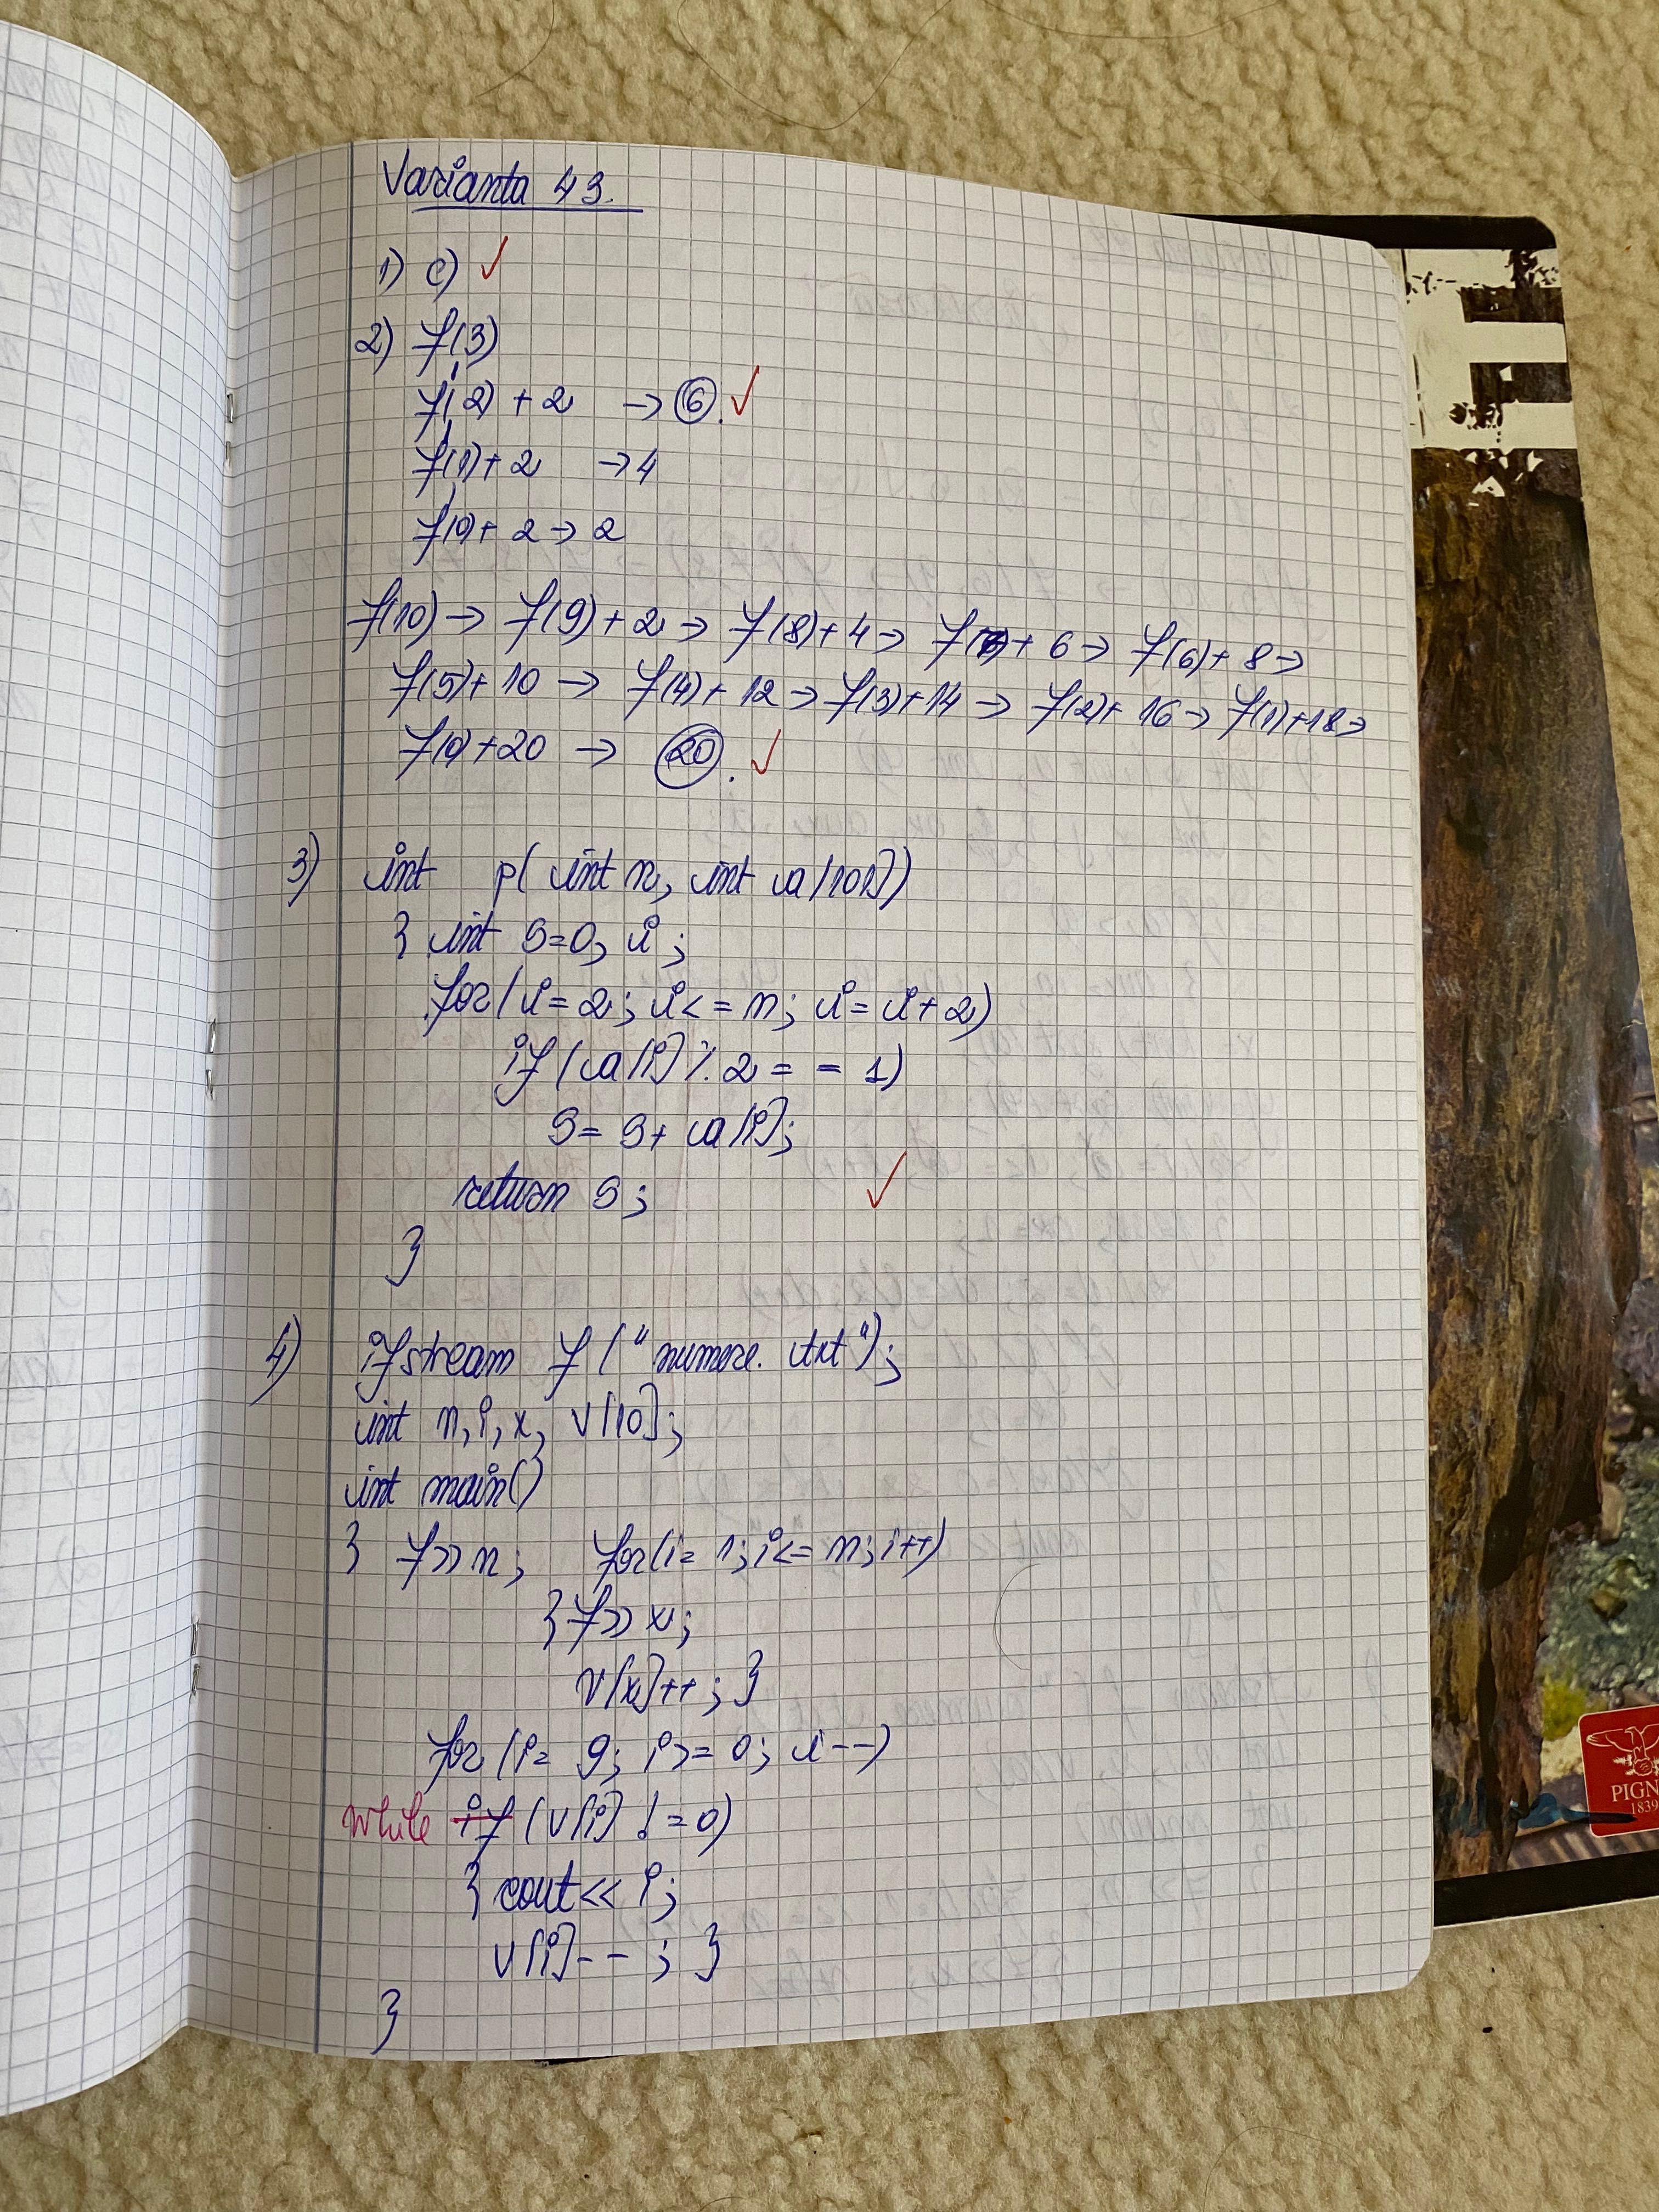 Varianta 43.
1) c) ✓
2) f(3)
f(2) + 2 → 6. ✓
f(1) + 2 → 4
f(0) + 2 → 2
f(10) → f(9) + 2 → f(8) + 4 → f(7) + 6 → f(6) + 8 →
f(5) + 10 → f(4) + 12 → f(3) + 14 → f(2) + 16 → f(1) + 18 →
f(0) + 20 → 20. ✓
3) int p( int n, int a[101])
{ int S=0, i ;
for( i= 2; i<= n; i= i+2)
if (a[i] % 2 = = 1)
S= S+ a[i];
return S; ✓
}
4) ifstream f ("numere.txt");
int n, i, x, v[10];
int main()
{ f>>n; for(i= 1; i<= n; i++)
{ f>> x;
v[x]++; }
for (i= 9; i>= 0; i--)
while if (v[i] != 0)
{ cout<< i;
v[i]-- ; }
}
PIGN
1839